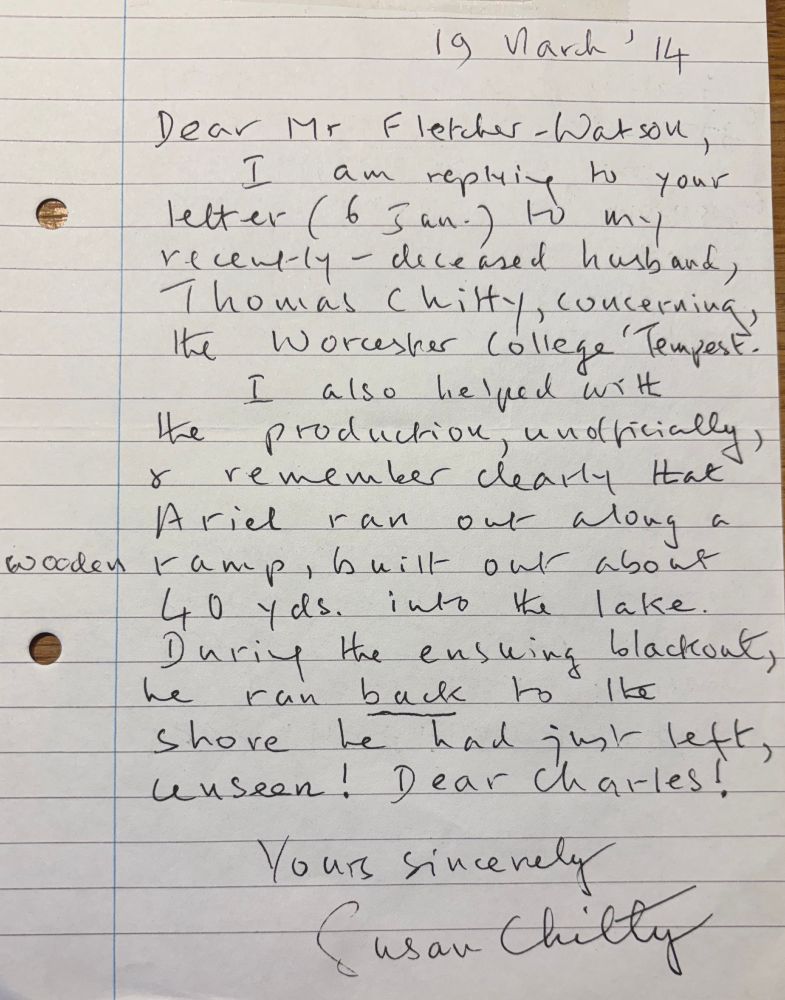 19 March '14
Dear Mr Fletcher-Watson,
I am replying to your
letter (6 Jan.) to my
recently-deceased husband,
Thomas Chitty, concerning,
the Worcester College 'Tempest.
I also helped with
the production, unofficially,
& remember clearly that
Ariel ran out along a
wooden ramp, built out about
40 yds. into the lake.
During the ensuing blackout,
he ran back to the
shore he had just left,
unseen! Dear Charles!
Yours sincerely
Susan Chitty